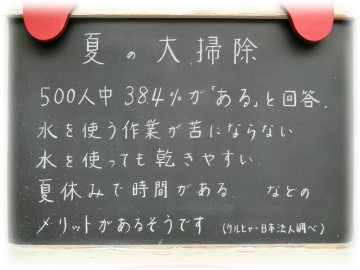 夏の大掃除
500人中 38.4%が「ある」と回答.
水を使う作業が苦にならない
水を使っても乾きやすい.
夏休みで時間がある. などの
メリットがあるそうです (ケルヒャー日本法人調べ)